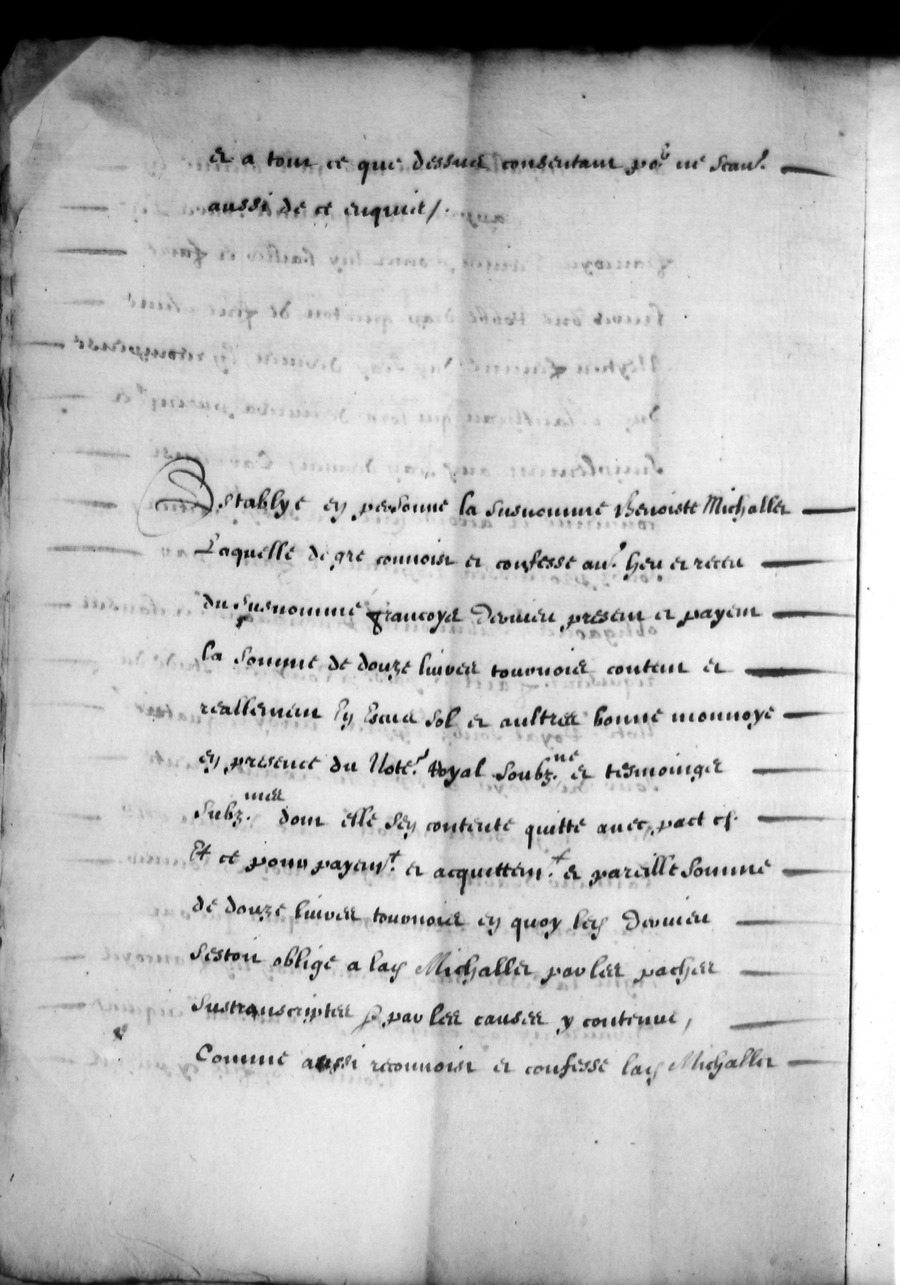 et a tout ce que dessus consentant po.r ne scav.r
aussi de ce enquis /.
Establye en personne la susnommé Benoiste Michallet
Laquelle de gre connoist et confesse av.r heu et receu
du susnommé françoys Dervieu present et payent
la somme de douze livres tournois content et
reallement En Escus sol et aultres bonne monnoye
en presence du Note.r Royal soubz.né et tesmoingz
subz.nés dont elle sen contente quitte avec pact etc.
Et ce pour payem.t et acquittem.t et pareille somme
de douze livres tournois en quoy led Dervieu
sestoit obligé a lad Michallet par les paches
sustranscriptes & par les causes y contenue,
Comme aussi reconnoist et confesse lad Michallet